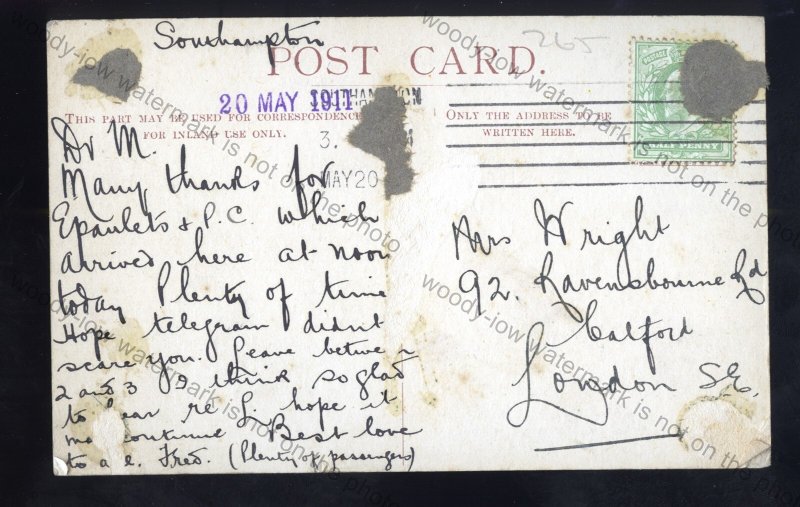 Southampton
265
POST CARD.
20 MAY 1911
SOUTHAMPTON
THIS PART MAY BE USED FOR CORRESPONDENCE
FOR INLAND USE ONLY.
ONLY THE ADDRESS TO BE
WRITTEN HERE.
3.
MAY 20
POSTAGE
HALF PENNY
Dr M.
Many thanks for
Epaulets & P.C. which
arrived here at noon
today Plenty of time
Hope telegram didnt
scare you. Leave betwee n
2 and 3 I think so glad
to hear re L. hope it
may continue Best love
to all. Fred. (Plenty of passengers)
Mrs Wright
92. Ravensbourne Rd
Catford
London SE.
woody-iow watermark is not on the photo
woody-iow watermark is not on the photo
woody-iow watermark is not on the photo
woody-iow watermark is not on the photo